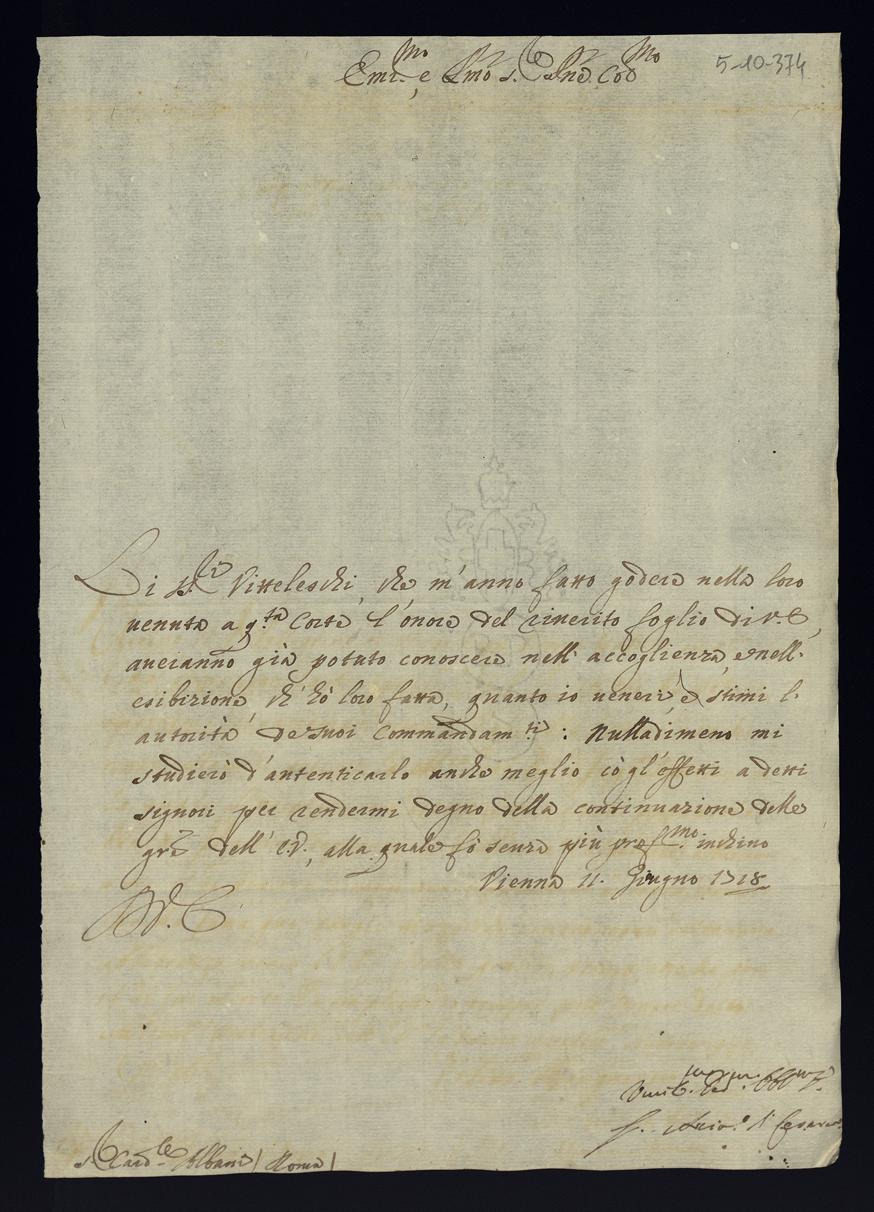 Em.mo e R.mo S.re P.ne Col.mo
5-10-374
Li SS.ri Vitteleschi, che m'anno fatto godere nella loro
venuta a q.ta Corte l'onore del riverito foglio di V.E,
averanno già potuto conoscere nell'accoglienza, e nell'
esibizione, ch'hò loro fatta, quanto io veneri, e stimi l'
autorità de suoi Commandam.ti: Nulladimeno mi
studierò d'autenticarlo anche meglio cò gl'effetti a detti
signori per rendermi degno della continuazione delle
grã dell'E.V., alla quale fò senza più prof.mo inchino
Vienna 11. Giugno 1718.
D.V.E.
S.r Card.le Albani / Roma /